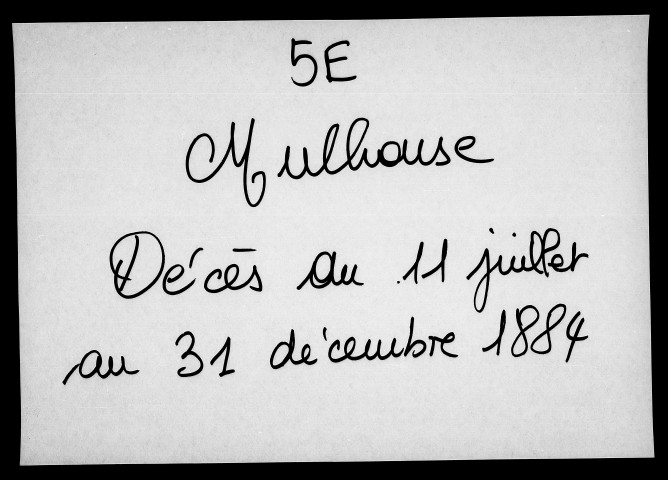 5E
Mulhouse
Décès du 11 juillet
au 31 décembre 1884